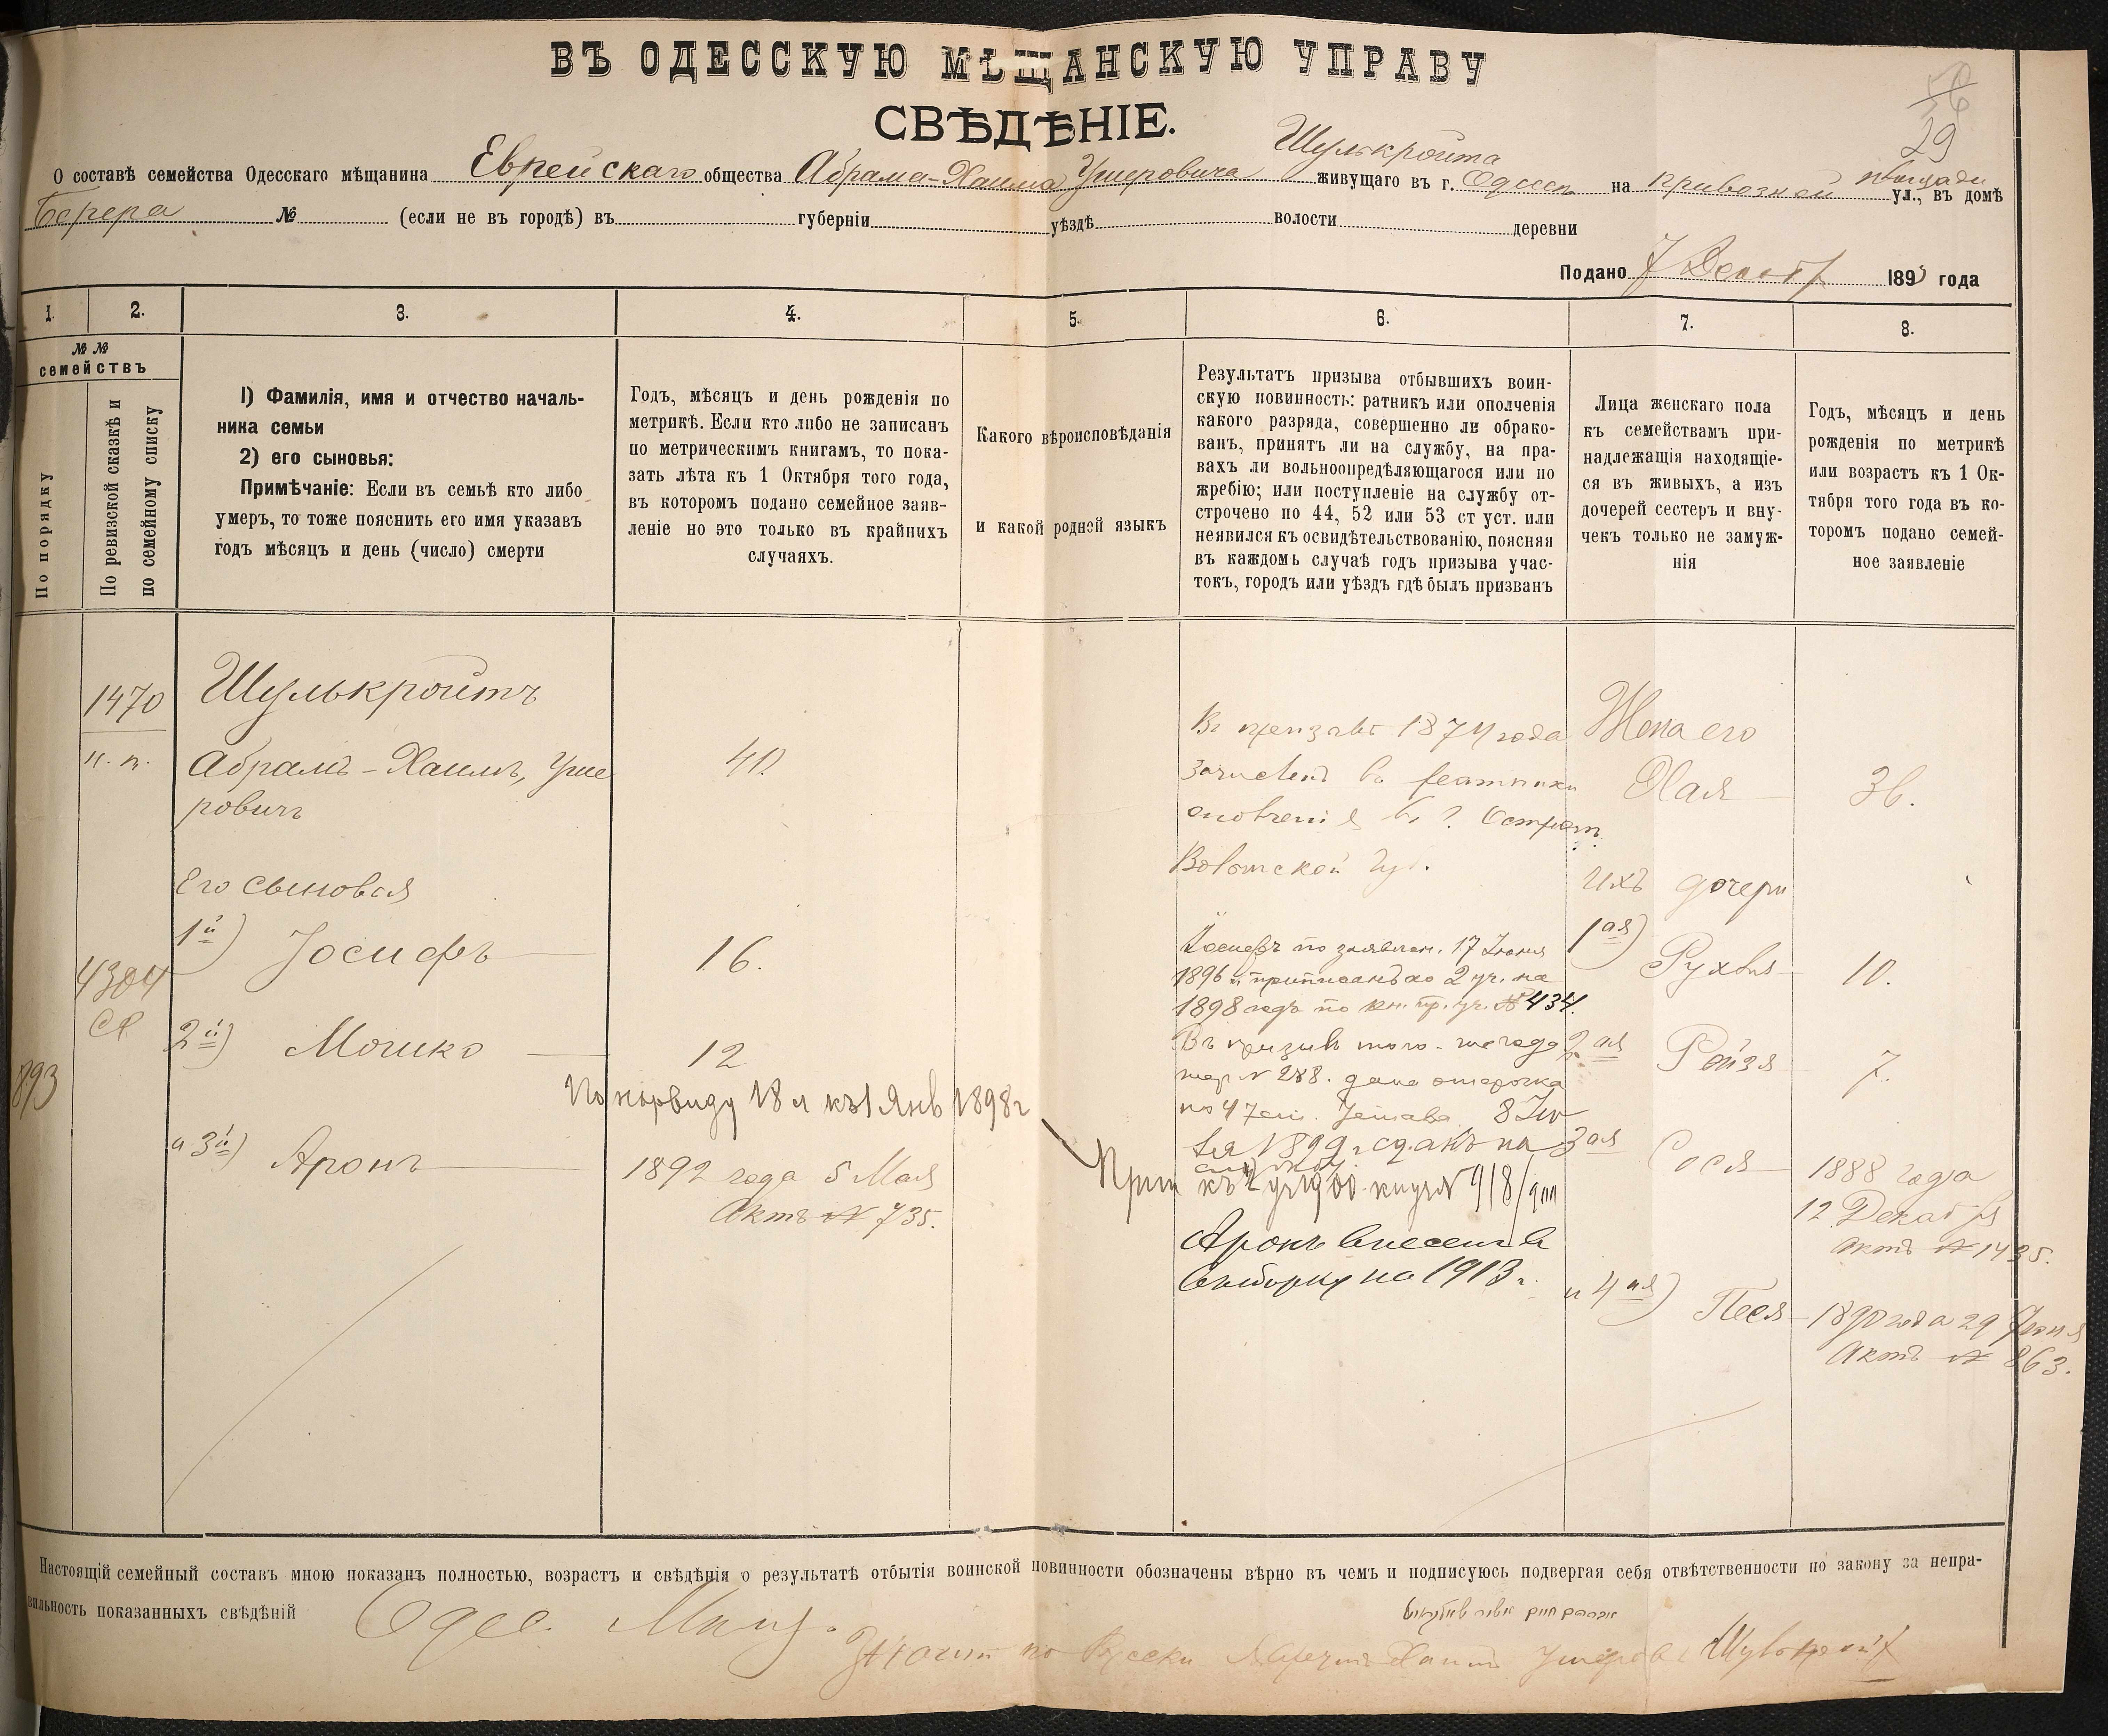 ВЪ ОДЕССКУЮ МѢЩАНСКУЮ УПРАВУ
СВѢДѢНІЕ.
29
Шулькройта
О составѣ семейства Одесскаго мѣщанина Еврейскаго общества Абрама-Хаима Ушеровича живущаго въ г. Одессѣ на Привозной площади ул., въ домѣ
Берера № (если не въ городѣ) въ губерніи уѣздѣ волости деревни
Подано 7 Декабр 1893 года
1. 2. 3. 4. 5. 6. 7. 8.
№ №
семействъ
По порядку
По ревизской сказкѣ и
по семейному списку
1) Фамилія, имя и отчество началь-
ника семьи
2) его сыновья:
Примѣчаніе: Если въ семьѣ кто либо
умеръ, то тоже пояснить его имя указавъ
годъ мѣсяцъ и день (число) смерти
Годъ, мѣсяцъ и день рожденія по
метрикѣ. Если кто либо не записанъ
по метрическимъ книгамъ, то пока-
зать лѣта къ 1 Октября того года,
въ которомъ подано семейное заяв-
леніе но это только въ крайнихъ
случаяхъ.
Какого вѣроисповѣданія
и какой родной языкъ
Результатъ призыва отбывшихъ воин-
скую повинность: ратникъ или ополченія
какого разряда, совершенно ли обрако-
ванъ, принятъ ли на службу, на пра-
вахъ ли вольноопредѣляющагося или по
жребію; или поступленіе на службу от-
строчено по 44, 52 или 53 ст уст. или
неявился къ освидѣтельствованію, поясняя
въ каждомъ случаѣ годъ призыва учас-
токъ, городъ или уѣздъ гдѣ былъ призванъ
Лица женскаго пола
къ семействамъ при-
надлежащія находящіе-
ся въ живыхъ, а изъ
дочерей сестеръ и вну-
чекъ только не замуж-
нія
Годъ, мѣсяцъ и день
рожденія по метрикѣ
или возрастъ къ 1 Ок-
тября того года въ ко-
торомъ подано семей-
ное заявленіе
1470
н. п.
4304
893
Шулькройтъ
Абрамъ-Хаимъ, Уше
ровичъ
40.
Его сыновья
1й) Іосифъ 16.
2й) Мошко 12
По нарвиду 18 л къ 1 Янв 1898 г
и 3й) Аронъ
1892 года 5 Мая
Актъ № 735.
Въ призывѣ 1874 года
зачисленъ въ ратники
ополченія въ г. Острогѣ
Волынской губ.
Іосифъ по заявлен. 17 Іюня
1896 г. приписанъ ко 2 уч. на
1898 годъ по кн. пр. уч. № 434.
Въ призывѣ того-же года
жер № 288. дана отсрочка
по 47 ст. Устава 8 Ію
ля 1899 г
Прип къ 2 уч 1900 книга № 918
Аронъ внесенъ въ
выборку на 1913 г.
Жена его
Хая 36.
Ихъ дочери
1ая) Рухля 10.
2ая Ройзя 7.
3ая Сося 1888 года
12 Декабря
Актъ № 1435.
и 4ая) Песя 1890 года 29 Іюня
Актъ № 863.
Настоящій семейный составъ мною показанъ полностью, возрастъ и свѣдѣнія о результатѣ отбытія воинской повинности обозначены вѣрно въ чемъ и подписуюсь подвергая себя отвѣтственности по закону за непра-
вильность показанныхъ свѣдѣній
Одес. Мѣщ.
по Русски Абрамъ Хаимъ Ушеровъ Шулькройт